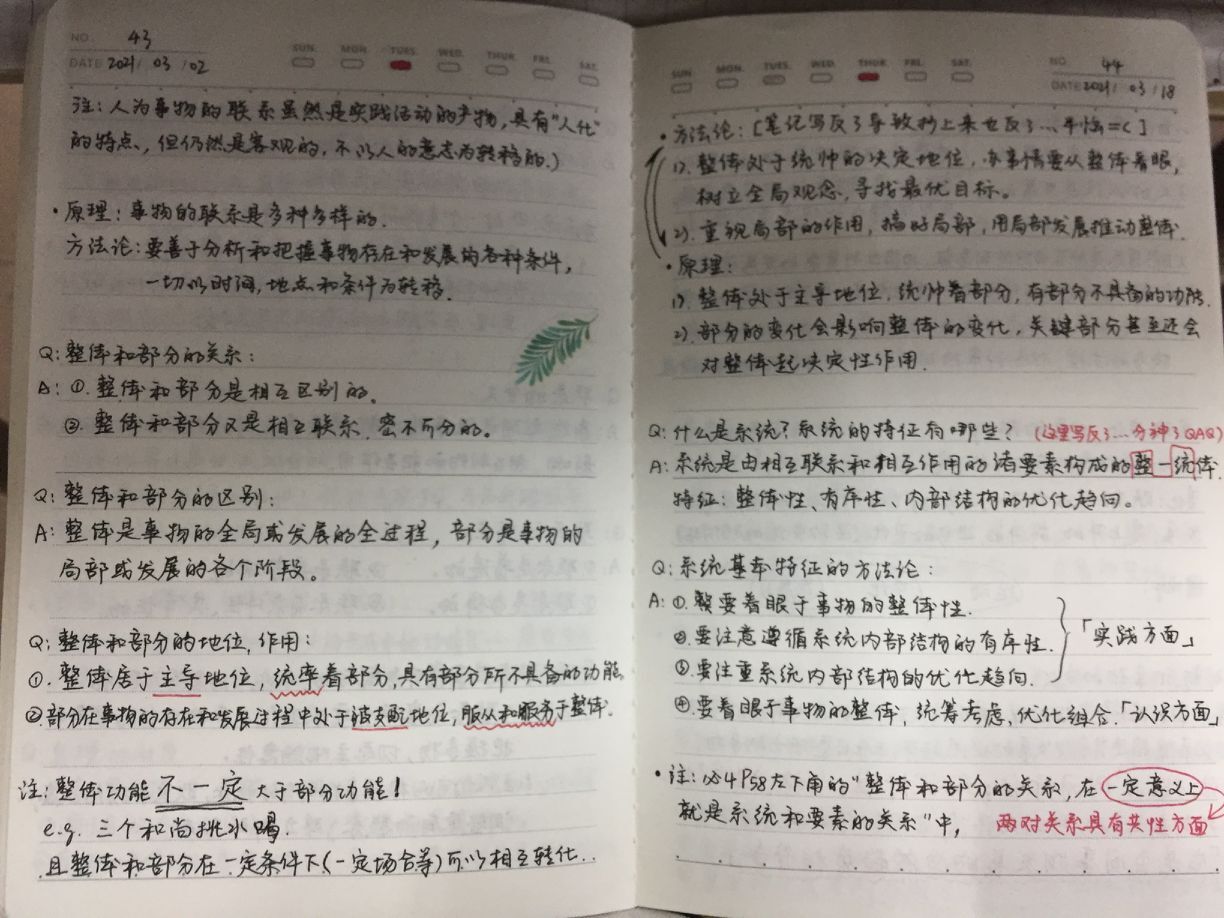 NO. 43
SUN. MON. TUES. WED. THUR. FRI. SAT.
DATE 2021 / 03 / 02
注：人为事物的联系虽然是实践活动的产物，具有“人化”
的特点，但仍然是客观的，不以人的意志为转移的.)
·原理：事物的联系是多种多样的.
方法论：要善于分析和把握事物存在和发展的各种条件，
一切以时间，地点和条件为转移.
Q：整体和部分的关系：
A：①.整体和部分是相互区别的。
②.整体和部分又是相互联系.密不可分的。
Q：整体和部分的区别：
A：整体是事物的全局或发展的全过程，部分是事物的
局部或发展的各个阶段。
Q：整体和部分的地位，作用：
①.整体居于主导地位，统率着部分，具有部分所不具备的功能
②部分在事物的存在和发展过程中处于被支配地位，服从和服务于整体.
注：整体功能不一定大于部分功能！
e.g. 三个和尚挑水喝.
且整体和部分在一定条件下(一定场合等)可以相互转化..
SUN. MON. TUES. WED. THUR. FRI. SAT.
NO. 44
DATE 2021 / 03 / 18
·方法论：[笔记写反了导致抄上来也反了… =C]
1).整体处于统帅的决定地位，办事情要从整体着眼，
树立全局观念，寻找最优目标。
2).重视局部的作用，搞好局部，用局部发展推动整体.
·原理：
1).整体处于主导地位，统帅着部分，有部分不具备的功能.
2).部分的变化会影响整体的变化，关键部分甚至还会
对整体起决定性作用.
Q：什么是系统？系统的特征有哪些？(这里写反了…分神了QAQ)
A：系统是由相互联系和相互作用的诸要素构成的整一统体.
特征：整体性、有序性、内部结构的优化趋向。
Q：系统基本特征的方法论：
A：①.要着眼于事物的整体性.
②.要注意遵循系统内部结构的有序性.
③.要注重系统内部结构的优化趋向.
「实践方面」
④.要着眼于事物的整体，统筹考虑，优化组合.「认识方面」
·注：必4P58左下角的“整体和部分的关系，在一定意义上
就是系统和要素的关系”中，两对关系具有共性方面